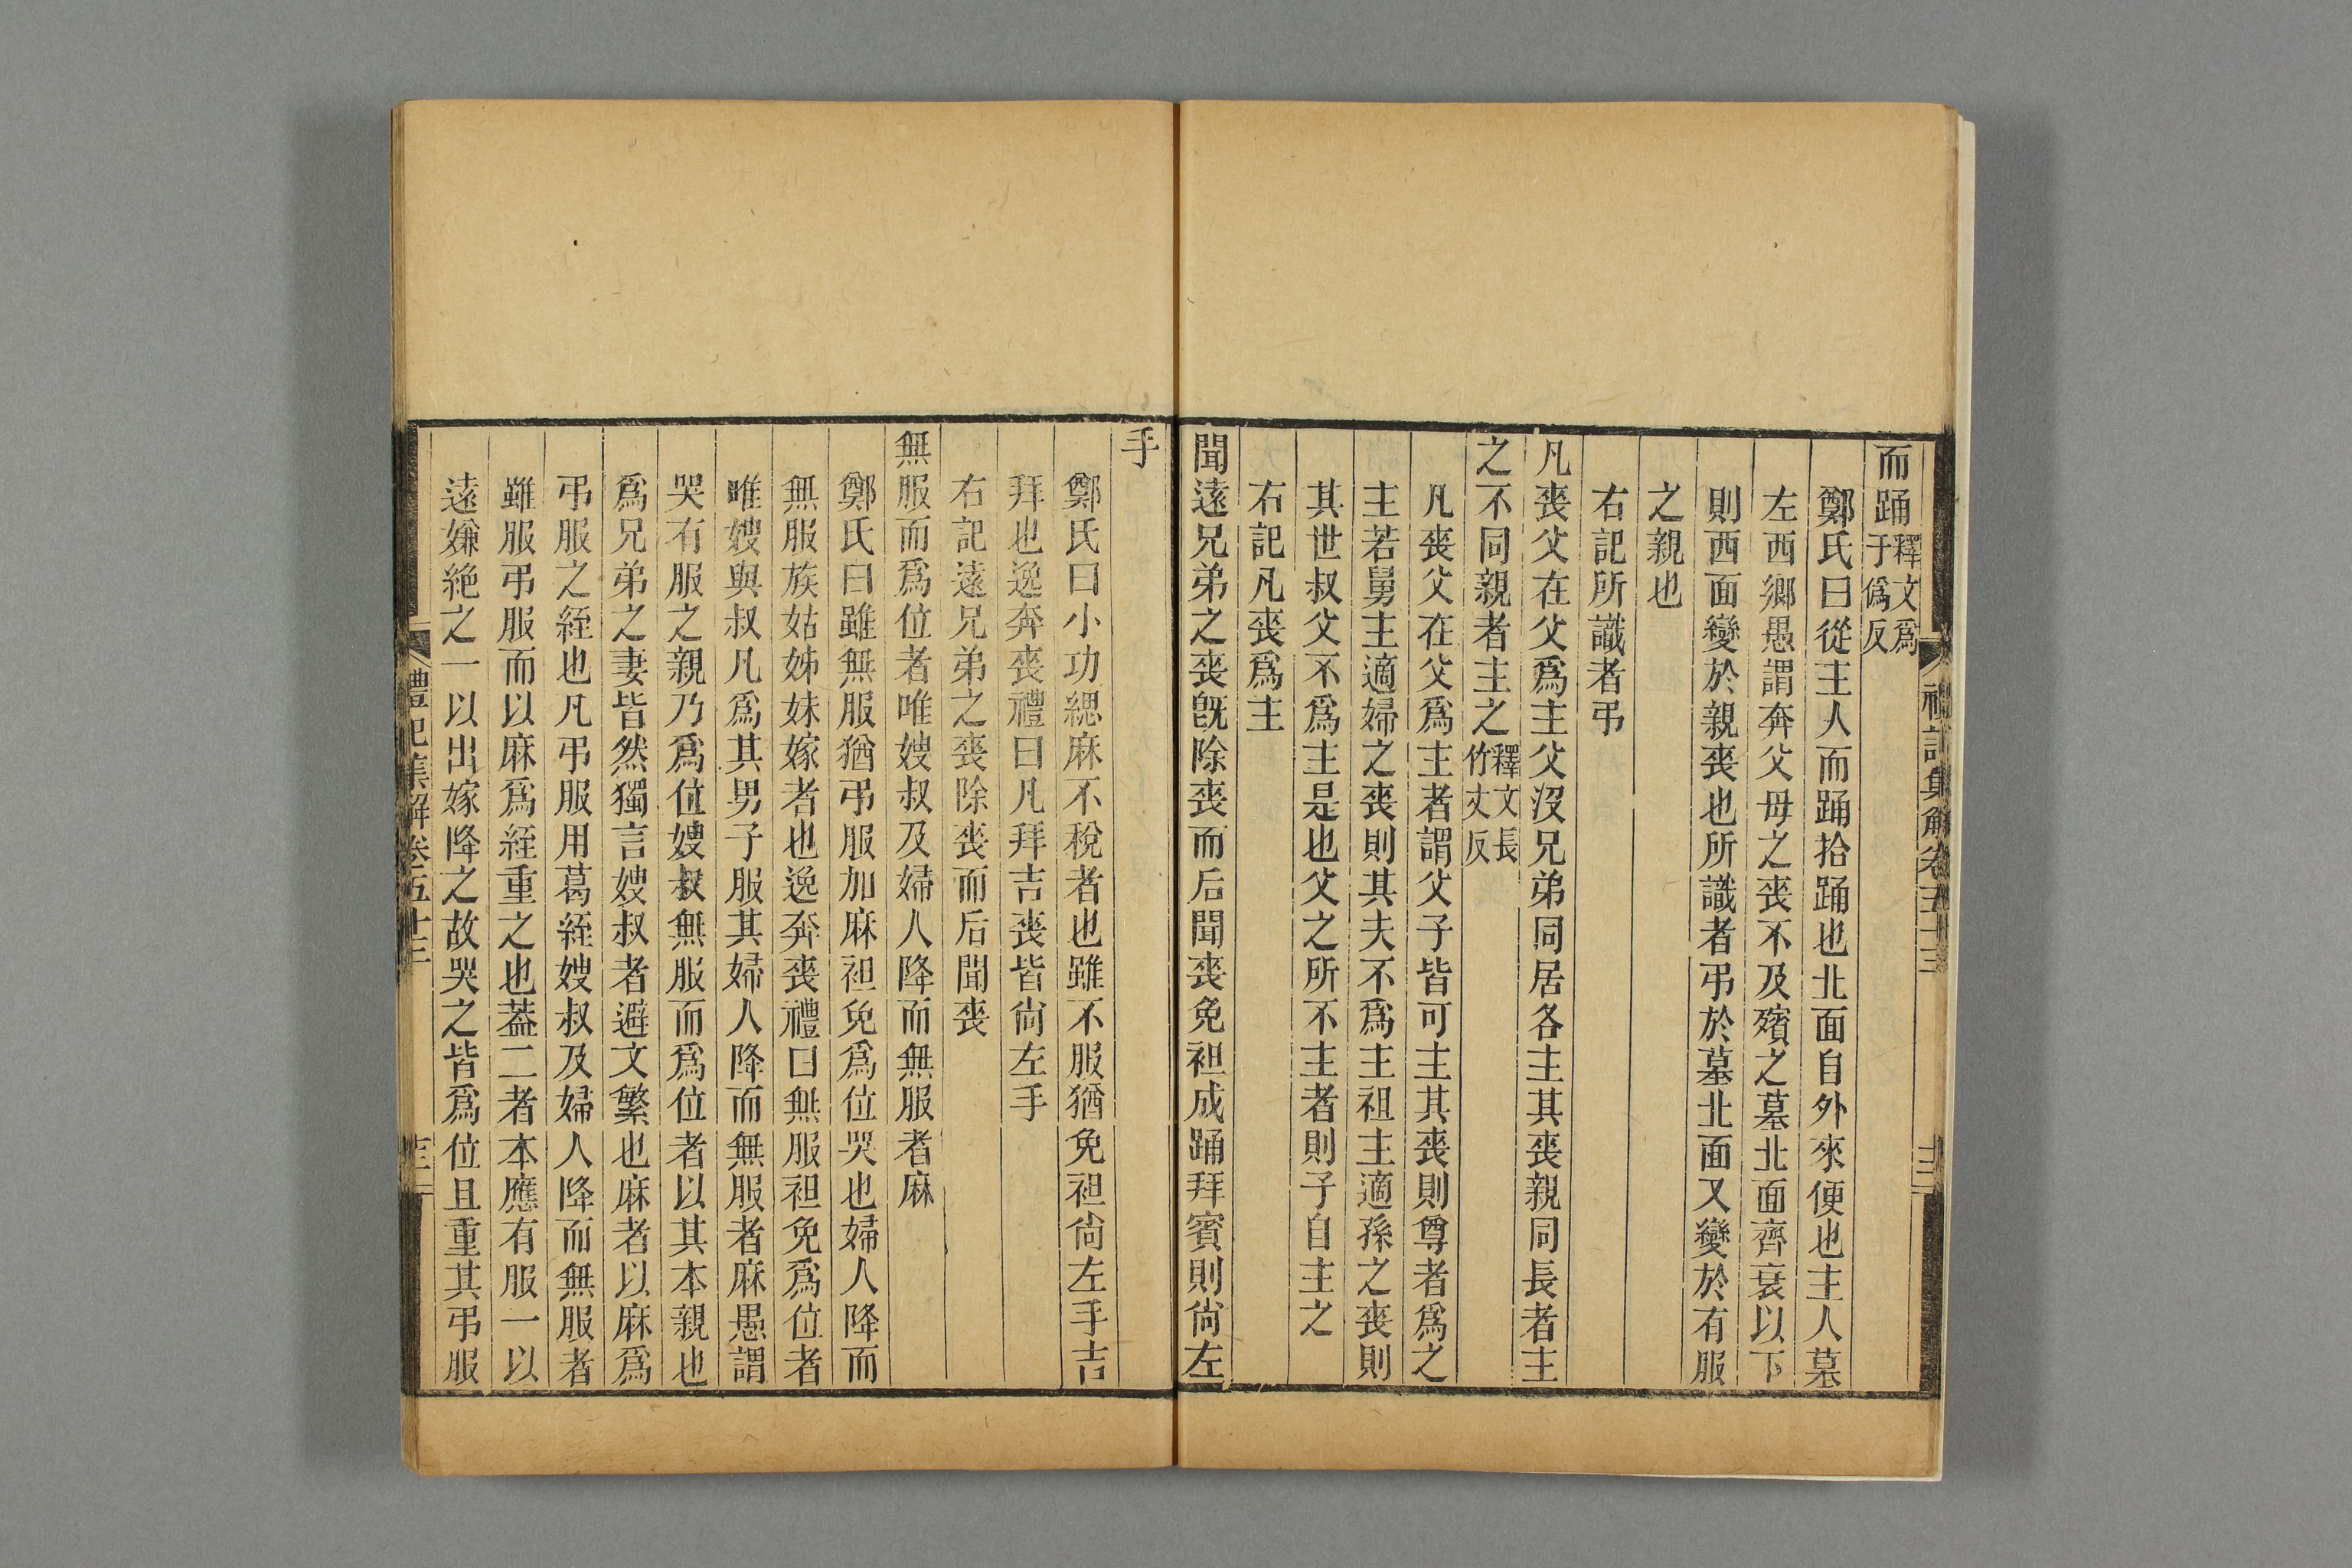 禮記集解卷五十三 十二
而踊釋文爲于僞反
鄭氏曰從主人而踊拾踊也北面自外來便也主人墓
左西鄉愚謂奔父母之喪不及殯之墓北面齊衰以下
則西面變於親喪也所識者弔於墓北面又變於有服
之親也
右記所識者弔
凡喪父在父爲主父沒兄弟同居各主其喪親同長者主
之不同親者主之釋文長竹丈反
凡喪父在父爲主者謂父子皆可主其喪則尊者爲之
主若舅主適婦之喪則其夫不爲主祖主適孫之喪則
其世叔父不爲主是也父之所不主者則子自主之
右記凡喪爲主
聞遠兄弟之喪旣除喪而后聞喪免袒成踊拜賓則尙左
手
鄭氏曰小功緦麻不稅者也雖不服猶免袒尙左手吉
拜也逸奔喪禮曰凡拜吉喪皆尙左手
右記遠兄弟之喪除喪而后聞喪
無服而爲位者唯嫂叔及婦人降而無服者麻
鄭氏曰雖無服猶弔服加麻袒免爲位哭也婦人降而
無服族姑姊妹嫁者也逸奔喪禮曰無服袒免爲位者
唯嫂與叔凡爲其男子服其婦人降而無服者麻愚謂
哭有服之親乃爲位嫂叔無服而爲位者以其本親也
爲兄弟之妻皆然獨言嫂叔者避文繁也麻者以麻爲
弔服之絰也凡弔服用葛絰嫂叔及婦人降而無服者
雖服弔服而以麻爲絰重之也蓋二者本應有服一以
遠嫌絶之一以出嫁降之故哭之皆爲位且重其弔服
禮記集解卷五十三